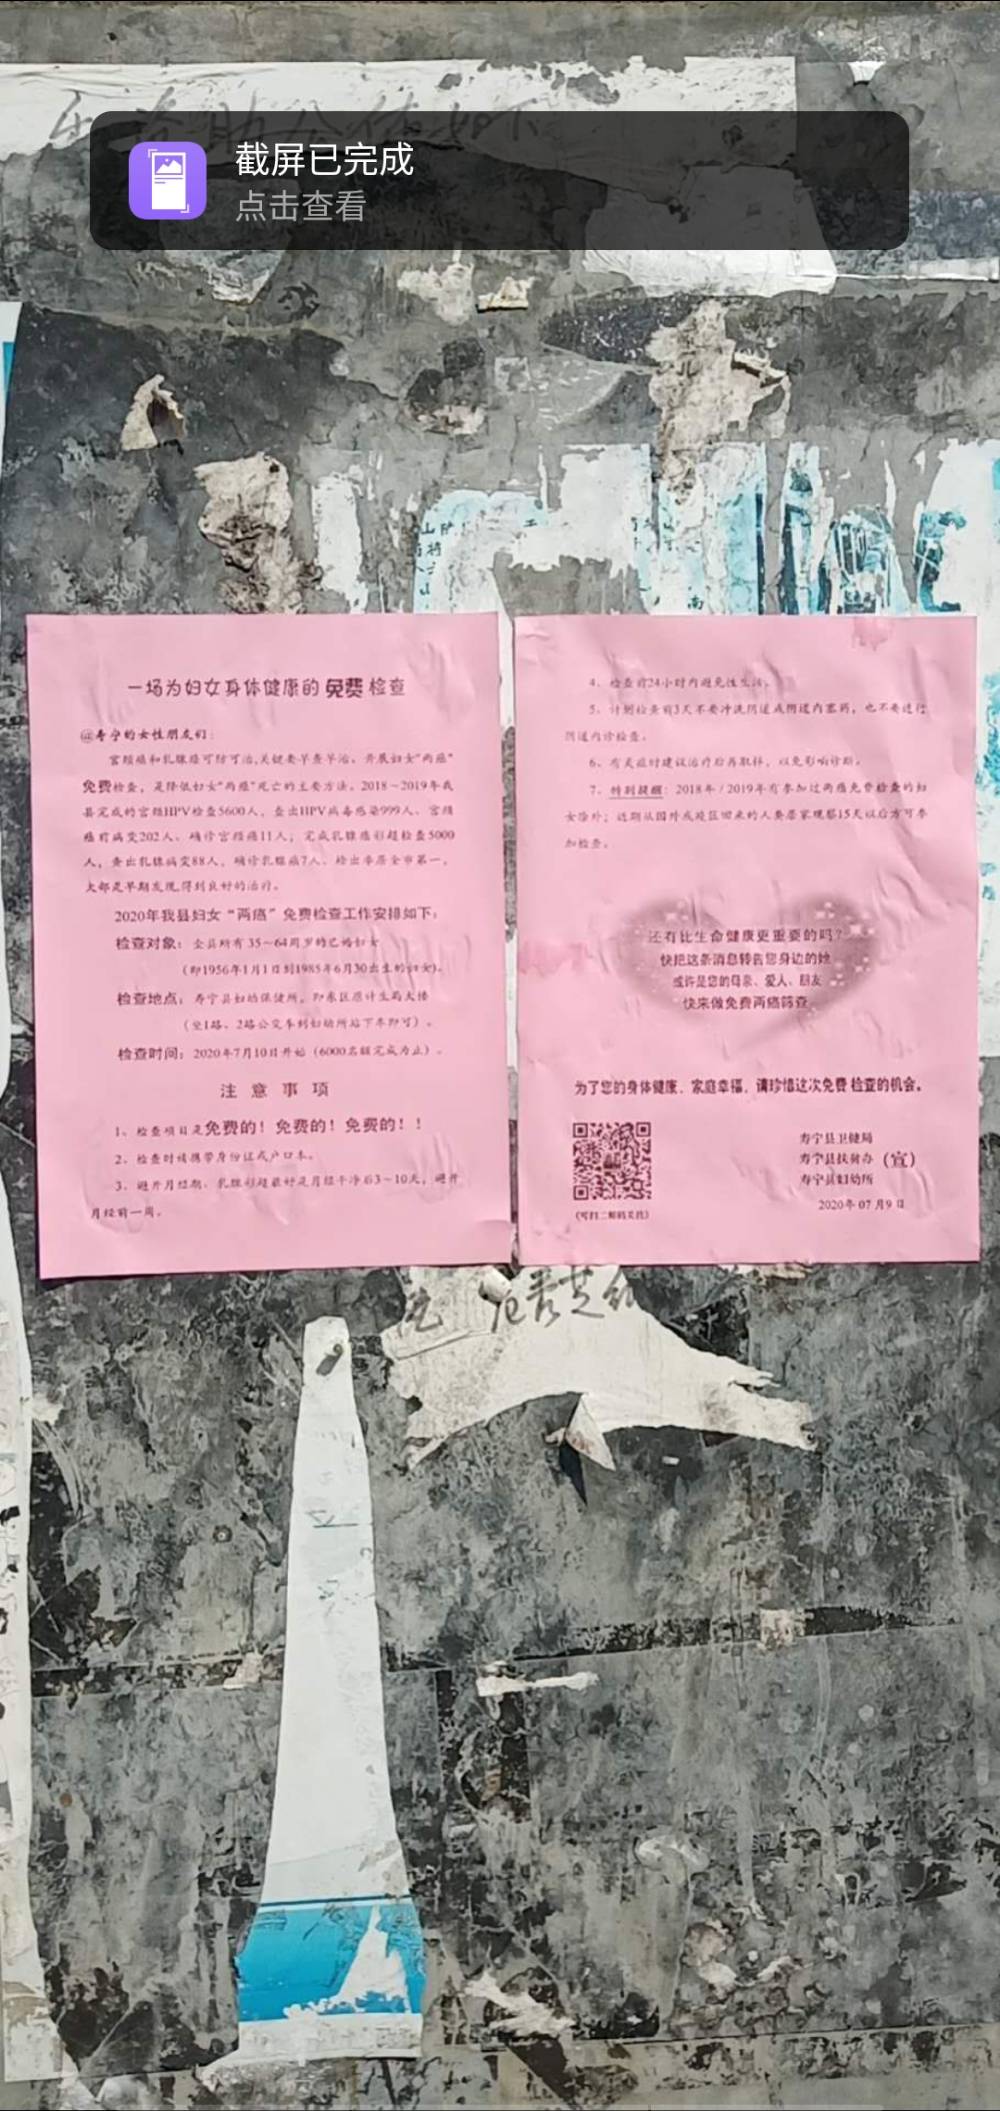 截屏已完成
点击查看
一场为妇女身体健康的免费检查
@寿宁的女性朋友们：
宫颈癌和乳腺癌可防可治,关键要早查早治。开展妇女“两癌”
免费检查，是降低妇女“两癌”死亡的主要方法。2018-2019年我
县完成的宫颈HPV检查5600人，查出HPV病毒感染999人、宫颈
癌前病变202人、确诊宫颈癌11人；完成乳腺癌彩超检查5000
人，查出乳腺病变88人，确诊乳腺癌7人。检出率居全市第一，
大部是早期发现,得到良好的治疗。
2020年我县妇女“两癌”免费检查工作安排如下：
检查对象：全县所有35~64周岁的已婚妇女
（即1956年1月1日到1985年6月30出生的妇女)。
检查地点：寿宁县妇幼保健所，即东区原计生局大楼
（坐1路、2路公交车到妇幼所站下车即可）。
检查时间：2020年7月10日开始（6000名额完成为止）。
注 意 事 项
1、检查项目是免费的！免费的！免费的！！
2、检查时请携带身份证或户口本。
3、避开月经期、乳腺彩超最好是月经干净后3~10天，避开
月经前一周。
4、检查前24小时内避免性生活。
5、计划检查前3天不要冲洗阴道或阴道内塞药，也不要进行
阴道内诊检查。
6、有炎症时建议治疗后再取样，以免影响诊断。
7、特别提醒：2018年/2019年有参加过两癌免费检查的妇
女除外；近期从国外或疫区回来的人要居家观察15天以后方可参
加检查。
还有比生命健康更重要的吗？
快把这条消息转告您身边的她
或许是您的母亲、爱人、朋友
快来做免费两癌筛查
为了您的身体健康、家庭幸福，请珍惜这次免费检查的机会。
寿宁县卫健局
寿宁县扶贫办（宣）
寿宁县妇幼所
2020年07月9日
（可扫二维码关注）